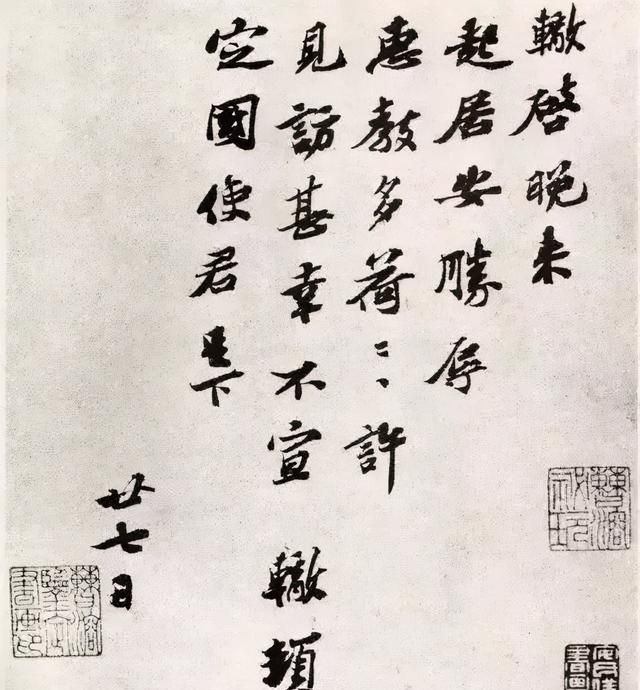 轍啓晚来
起居安勝辱
惠教多荷〻〻許
見訪甚幸不宣 轍頓
定國使君足下
廿七日